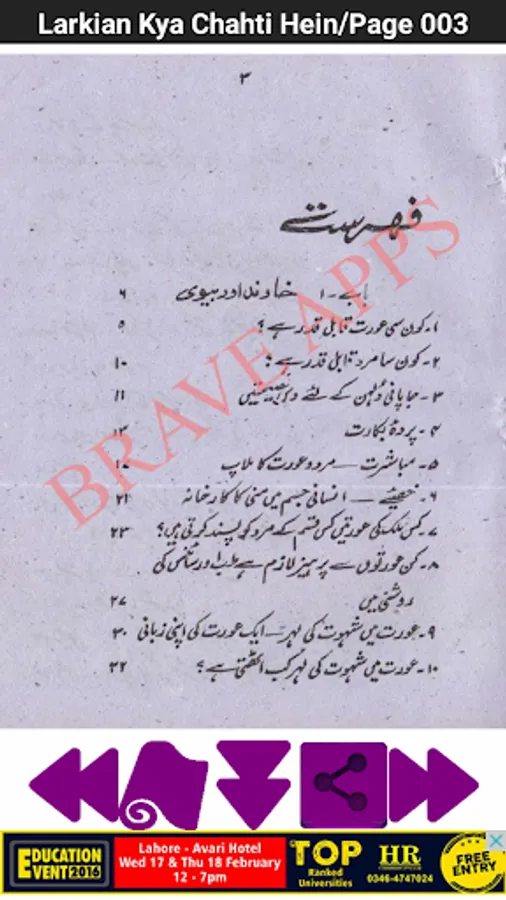 Larkian Kya Chahti Hein/Page 003
۳
فہرست
باب - ۱ خاوند اور بیوی ۶
۱- کون سی عورت قابل قدر ہے؟ ۹
۲- کون سا مرد قابل قدر ہے؟ ۱۰
۳- جاپانی دُلہن کے لئے نصیحتیں ۱۱
۴- پردۂ بکارت ۱۳
۵- مباشرت — مرد و عورت کا ملاپ ۱۷
۶- خصیے — انسانی جسم میں منی کا کارخانہ ۲۱
۷- کس ملک کی عورتیں کس قسم کے مرد کو پسند کرتی ہیں؟ ۲۳
۸- کن عورتوں سے پرہیز لازم ہے طب اور سائنس کی
روشنی میں ۲۷
۹- عورت میں شہوت کی لہر — ایک عورت کی اپنی زبانی ۳۰
۱۰- عورت میں شہوت کی لہر کب اٹھتی ہے؟ ۳۲
BRAVE APPS
EDUCATION
EVENT 2016
Lahore - Avari Hotel
Wed 17 & Thu 18 February
12 - 7pm
TOP
Ranked
Universities
HR
0346-4747024
FREE
ENTRY